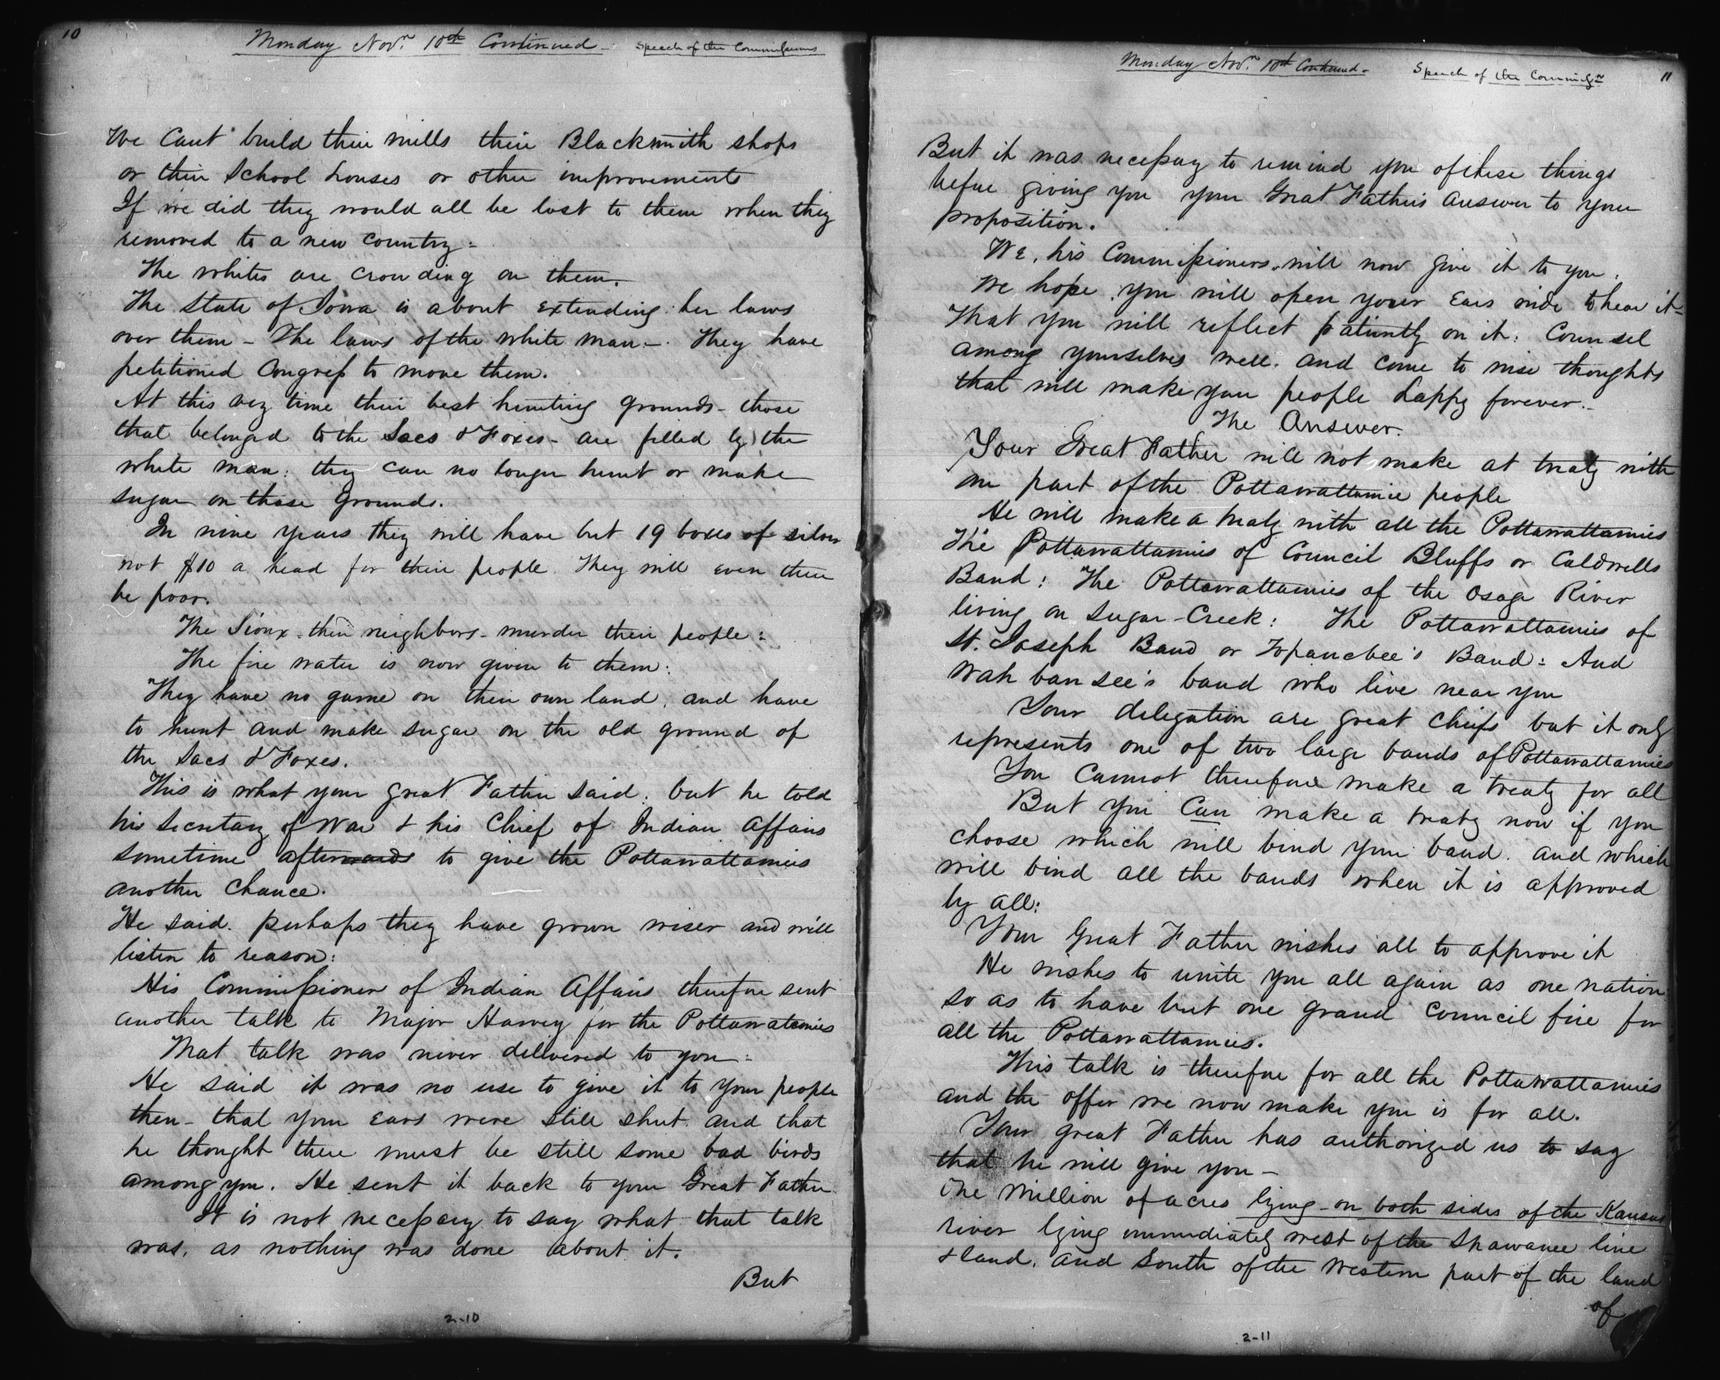 10
Monday Novr. 10th Continued - Speech of the Commissioners
We cant build their mills their Blacksmith shops
or their School houses or other improvements
If we did they would all be lost to them when they
removed to a new country =
The whites are crowding on them.
The State of Iowa is about extending her laws
over them - The laws of the white man -. They have
petitioned Congress to move them.
At this very time their best hunting grounds - those
that belonged to the Sacs & Foxes - are filled by the
white man: they can no longer hunt or make
sugar on those grounds.
In nine years they will have but 19 boxes of silver
not $10 a head for their people. They will even then
be poor.
The Sioux - their neighbors - murder their people:
The fire water is now given to them:
They have no game on their own land, and have
to hunt and make sugar on the old ground of
the Sacs & Foxes.
This is what your great Father said: but he told
his Secretary of War & his Chief of Indian Affairs
sometime afterwards to give the Pottawattamies
another chance.
He said. perhaps they have grown wiser and will
listen to reason:
His Commissioner of Indian Affairs therefore sent
another talk to Major Harvey for the Pottawatamies
That talk was never delivered to you =
He said it was no use to give it to your people
then - that your Ears were still shut and that
he thought there must be still some bad birds
among you. He sent it back to your Great Father
It is not necessary to say what that talk
was, as nothing was done about it.
But
2-10
Monday Novr. 10th Continued - Speech of the Commissrs
11
But it was necessary to remind you of these things
before giving you your Great Father's answer to your
proposition.
We, his Commissioners, will now give it to you.
We hope you will open your Ears wide to hear it -
That you will reflect patiently on it: Counsel
among yourselves well. and come to wise thoughts
that will make your people happy forever -
The Answer.
Your Great Father will not make at treaty with
one part of the Pottawattamie people
He will make a treaty with all the Pottawattamies
The Pottawattamies of Council Bluffs or Caldwells
Band: The Pottawattamies of the Osage River
living on Sugar-Creek: The Pottawattamies of
St. Joseph Band or Topanebee's Band: And
Wah ban see's band who live near you
Your delegation are great Chiefs but it only
represents one of two large bands of Pottawattamies
You cannot therefore make a treaty for all
But you can make a treaty now if you
choose which will bind your band. and which
will bind all the bands when it is approved
by all:
Your Great Father wishes all to approve it
He wishes to unite you all again as one nation
so as to have but one grand Council fire for
all the Pottawattamies.
This talk is therefore for all the Pottawattamies
and the offer we now make you is for all.
Your great Father has authorized us to say
that he will give you -
One Million of acres lying - on both sides of the Kansas
river lying immediately west of the Shawanee line
& land. and South of the Western part of the land
of
2-11